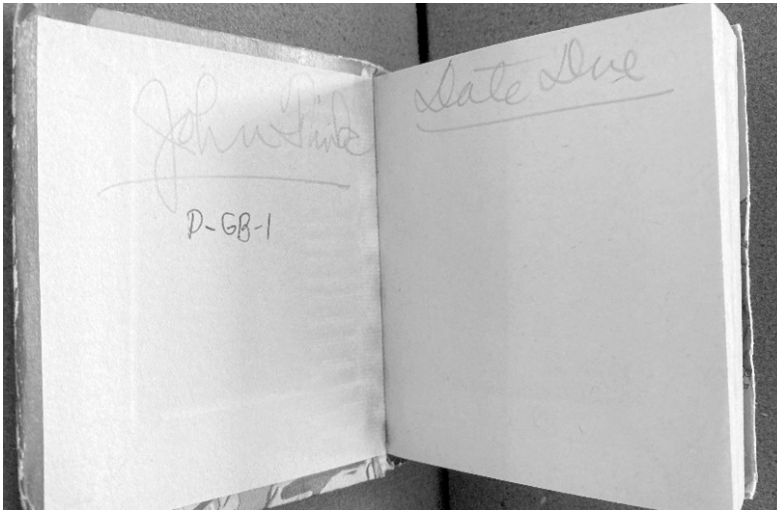 John Fink
D-GB-1
Date Due